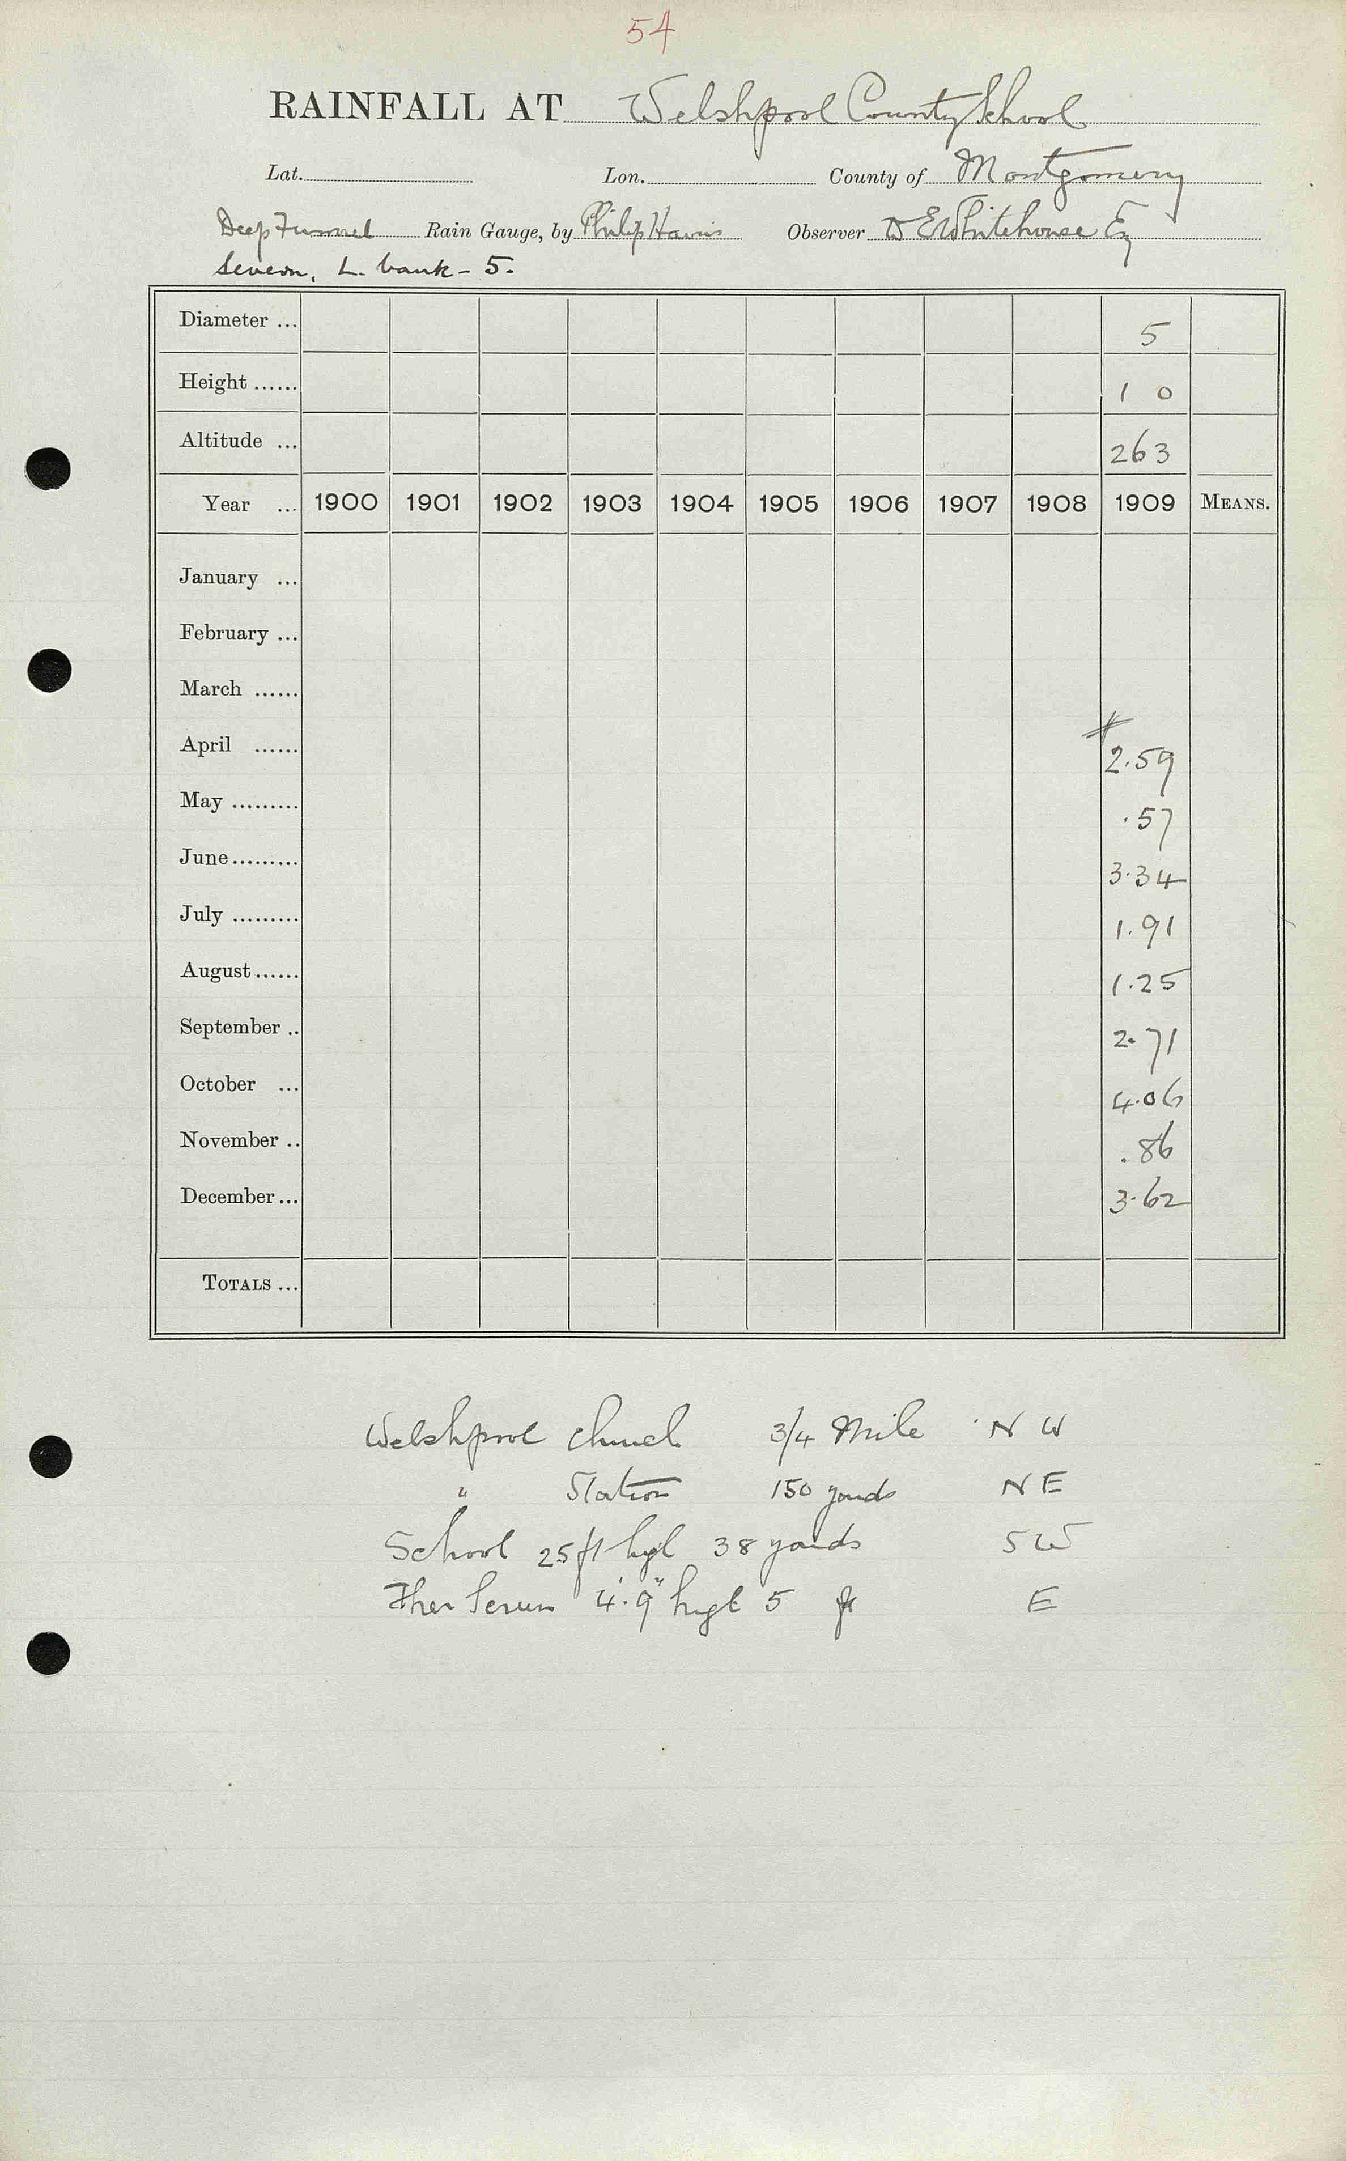 54
RAINFALL AT Welshpool County School
Lat. Lon. County of Montgomery
Deep Funnel Rain Gauge, by Philip Harris Observer D E Whitehouse Eq
Severn, L. bank - 5.
Diameter ... 5
Height ...... 1 0
Altitude ... 263
Year ... 1900 1901 1902 1903 1904 1905 1906 1907 1908 1909 MEANS.
January ...
February ...
March ......
April ...... 2.59
May ......... .57
June ......... 3.34
July ......... 1.91
August ...... 1.25
September .. 2.71
October ... 4.06
November .. .86
December ... 3.62
TOTALS ...
Welshpool Church 3/4 Mile N W
" Station 150 yards N E
School 25 ft high 38 yards S W
Ther Screen 4'.9" high 5 ft E